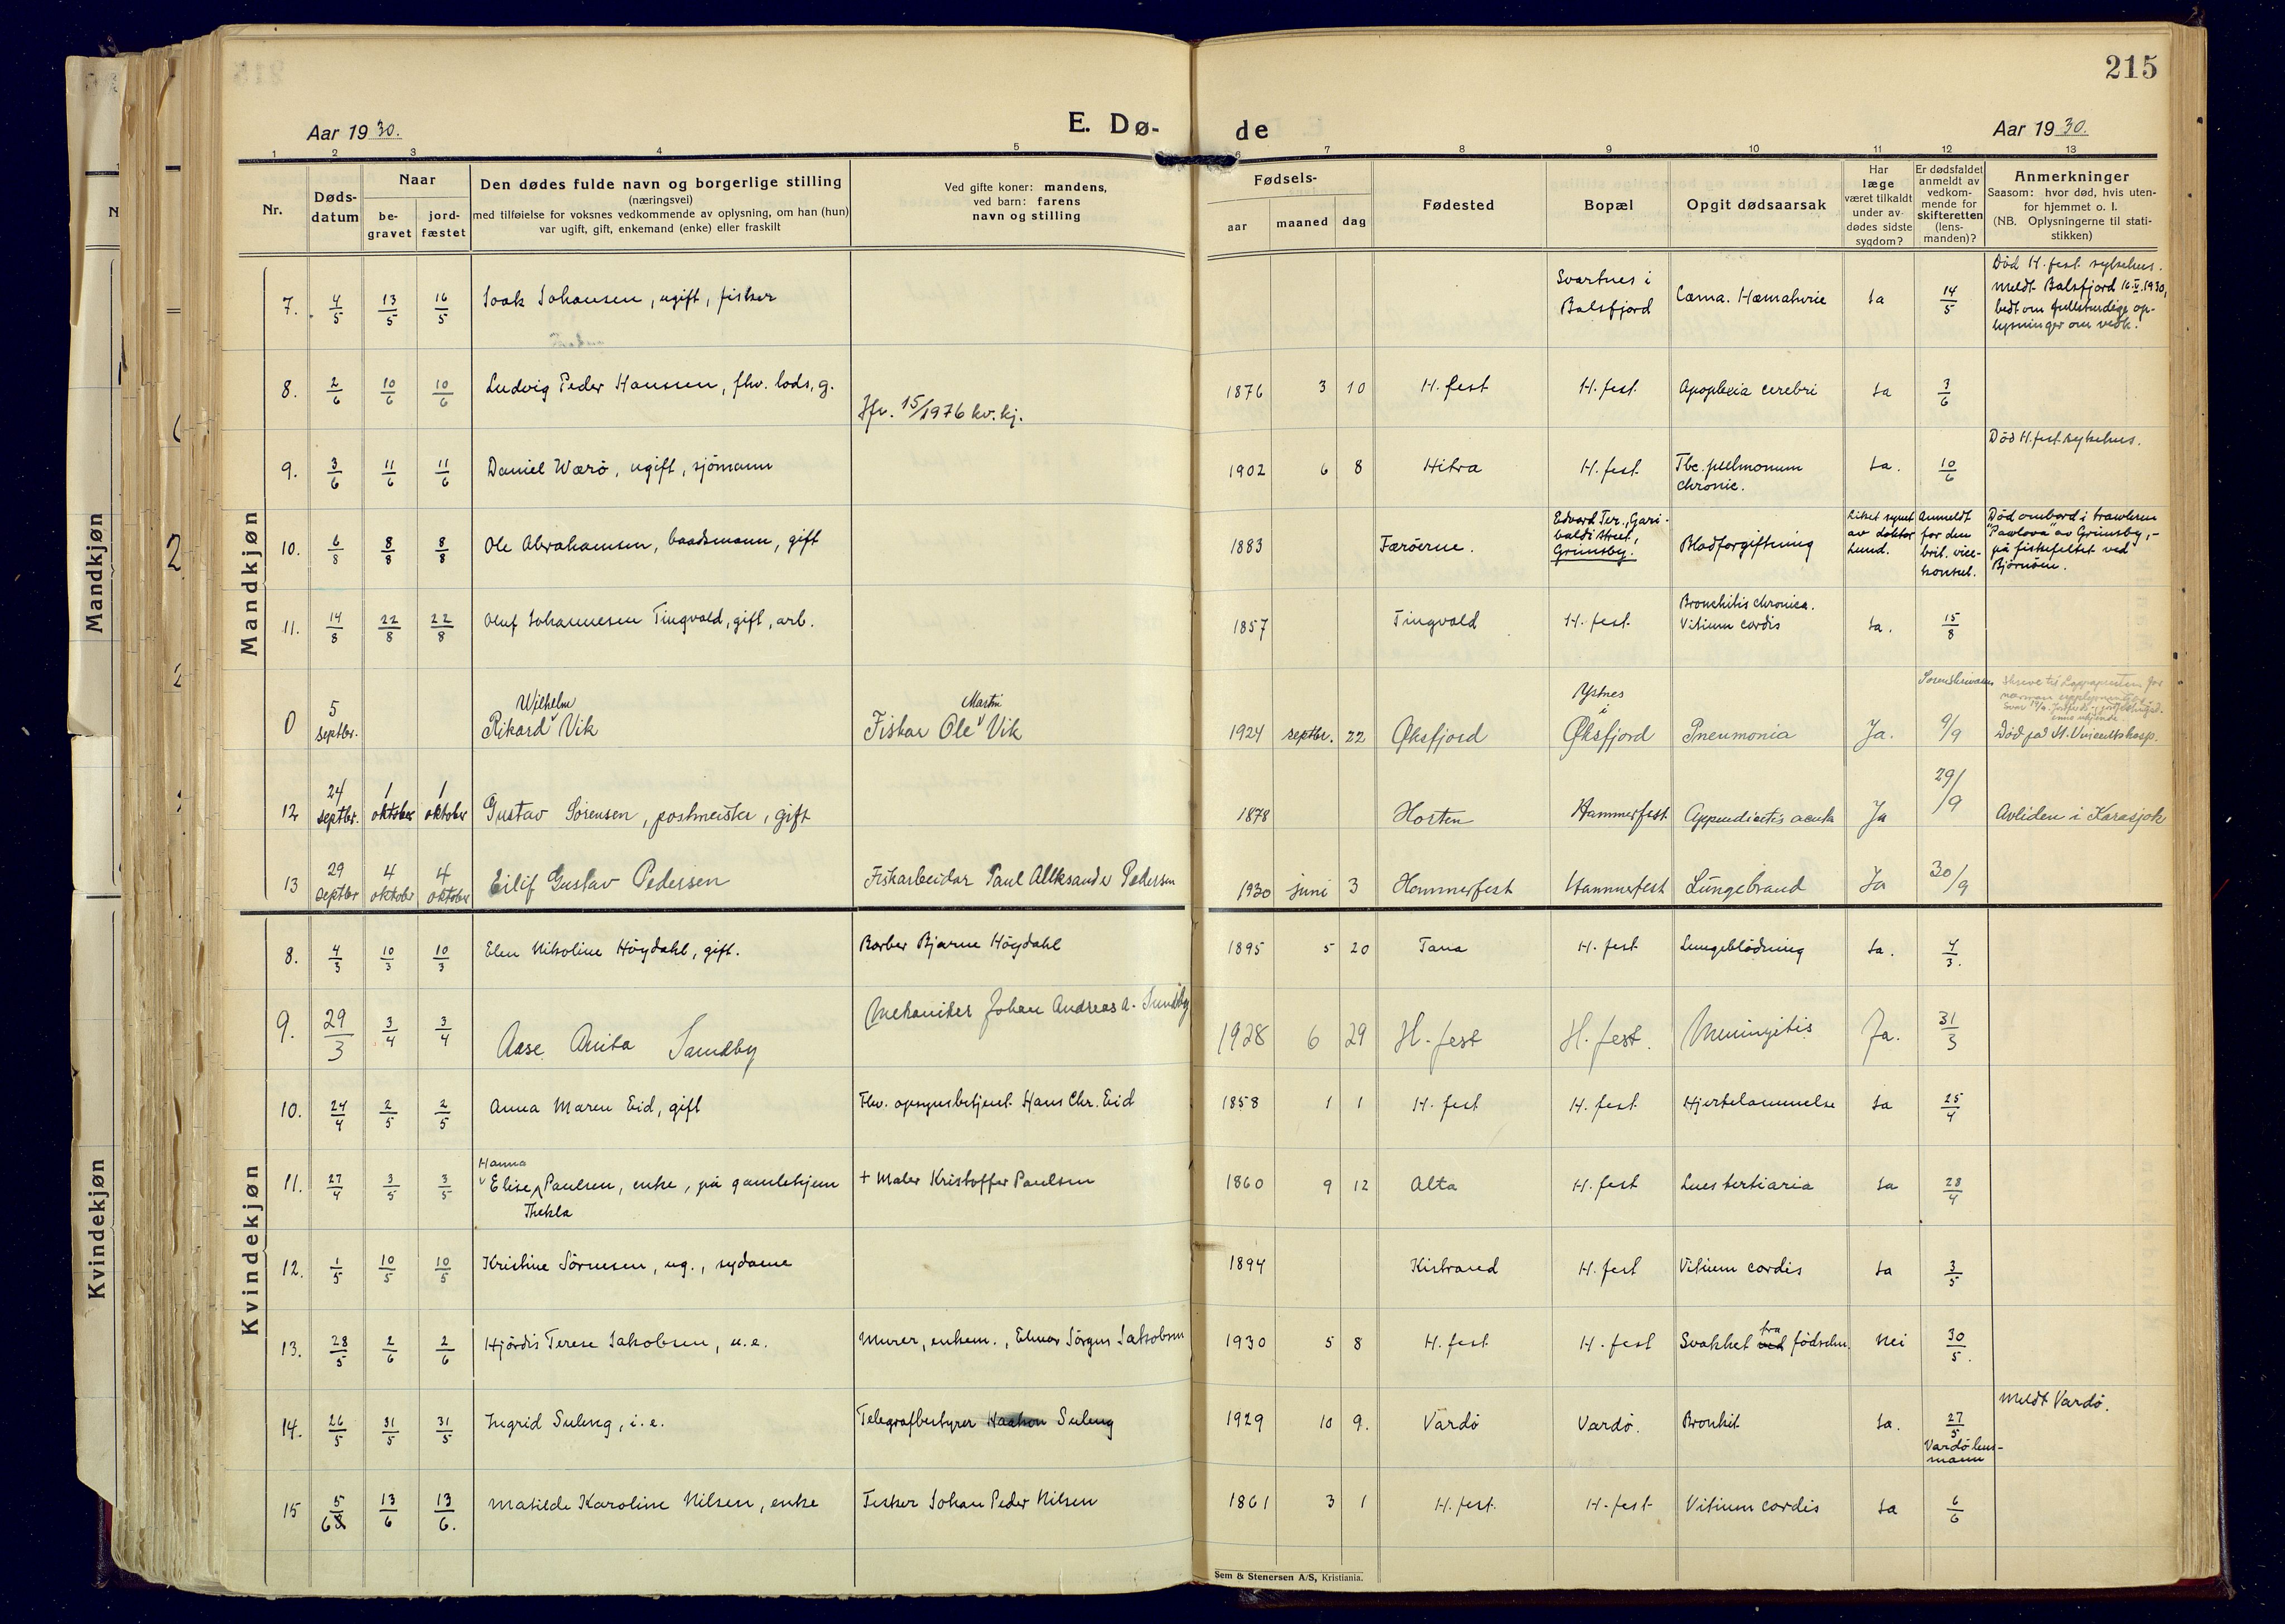 215
Aar 1930.
E. Dø-
de
Aar 1930.
1 2 3 4 5 6 7 8 9 10 11 12 13
Nr.
Døds-
datum
Naar
be-
gravet
jord-
fæstet
Den dødes fulde navn og borgerlige stilling
(næringsvei)
med tilføielse for voksnes vedkommende av oplysning, om han (hun)
var ugift, gift, enkemand (enke) eller fraskilt
Ved gifte koner: mandens,
ved barn: farens
navn og stilling
Fødsels-
aar maaned dag
Fødested
Bopæl
Opgit dødsaarsak
Har
læge
været tilkaldt
under av-
dødes sidste
sygdom?
Er dødsfaldet
anmeldt av
vedkom-
mende for
skifteretten
(lens-
manden)?
Anmerkninger
Saasom: hvor død, hvis uten-
for hjemmet o. l.
(NB. Oplysningerne til stati-
stikken)
Mandkjøn
7. 4/5 13/5 16/5 Isak Johansen, ugift, fisker Svartnes i Balsfjord Coma. Hæmaturie Ja 14/5 Død H.fest sykehus.
Meldt Balsfjord 16.V.1930,
bedt om fullstendige op-
lysninger om vedk.
8. 2/6 10/6 10/6 Ludvig Peder Hanssen, fhv. lods, g. Jfr. 15/1976 kv.kj. 1876 3 10 H.fest H.fest Apoplexia cerebri Ja 3/6
9. 3/6 11/6 11/6 Daniel Værø, ugift, sjömann 1902 6 8 Hitra H.fest Tbc. pulmonum chronic. Ja. 10/6 Død H.fest sykehus.
10. 6/8 8/8 8/8 Ole Abrahamsen, baadsmann, gift 1883 Færöerne. Edvard Ter., Gari-
baldi Street,
Grimsby. Blodforgiftning Liket synet
av doktor
Lund. Anmeldt
for den
brit. vice-
konsul. Død ombord i trawleren
"Pavlova" av Grimsby,-
på fiskefeltet ved
Bjørnøen.
11. 14/8 22/8 22/8 Oluf Johannesen Tingvold, gift, arb. 1857 Tingvold H.fest Bronchitis chronica.
Vitium cordis Ja. 15/8
0 5 septbr. Rikard Wilhelm Vik Fiskar Ole Martin Vik 1924 septbr. 22 Øksfjord Ystnes i Øksfjord Pneumonia Ja. Sorenskrivaren 9/9 Død på St. Vincents hosp.
12 24 septbr. 1 oktober 1 oktober Gustav Sörensen, postmeister, gift 1878 Horten Hammerfest Appendicitis acuta Ja 29/9 Avliden i Karasjok
13 29 septbr 4 oktober 4 oktober Eilif Gustav Pedersen Fiskarbeidar Paul Alleksander Pedersen 1930 juni 3 Hammerfest Hammerfest Lungebrand Ja 30/9
Kvindekjøn
8. 4/3 10/3 10/3 Elen Nikoline Höydahl, gift. Barber Bjarne Höydahl 1895 5 20 Tana H.fest Lungeblödning Ja. 4/3.
9. 29/3 3/4 3/4 Aase Anita Sandby Mekaniker Johan Andreas A. Sundby 1928 6 29 H.fest H.fest. Meningitis Ja. 31/3
10. 24/4 2/5 2/5 Anna Maren Eid, gift Fhv. opsynsbetjent Hans Chr. Eid 1858 1 1 H.fest H.fest Hjertelammelse Ja 25/4
11. 27/4 3/5 3/5 Hanna Elise Thekla Paulsen, enke, på gamlehjem + Maler Kristoffer Paulsen 1860 9 12 Alta H.fest Lues tertiaria Ja 28/4
12. 1/5 10/5 10/5 Kristine Sörnesen, ug., sydame 1894 Kistrand H.fest Vitium cordis Ja 3/5
13. 28/5 2/6 2/6 Hjördis Terese Jakobsen, u.e. Murer, enkem., Elmar Jörgen Jakobsen 1930 5 8 H.fest H.fest Svakhet ved fra fødselen. Nei 30/5.
14. 26/5 31/5 31/5 Ingrid Suleng, i.e. Telegrafbestyrer Haakon Suleng 1929 10 9. Vardö Vardö. Bronkit Ja. 27/5
Vardö lens-
mann Meldt Vardö.
15 5/6 13/6 13/6. Matilde Karoline Nilsen, enke Fisker Johan Peder Nilsen 1861 3 1 H.fest. H.fest Vitium cordis Ja 6/6
Sem & Stenersen A/S, Kristiania.
Mandkjøn
Kvindekjøn